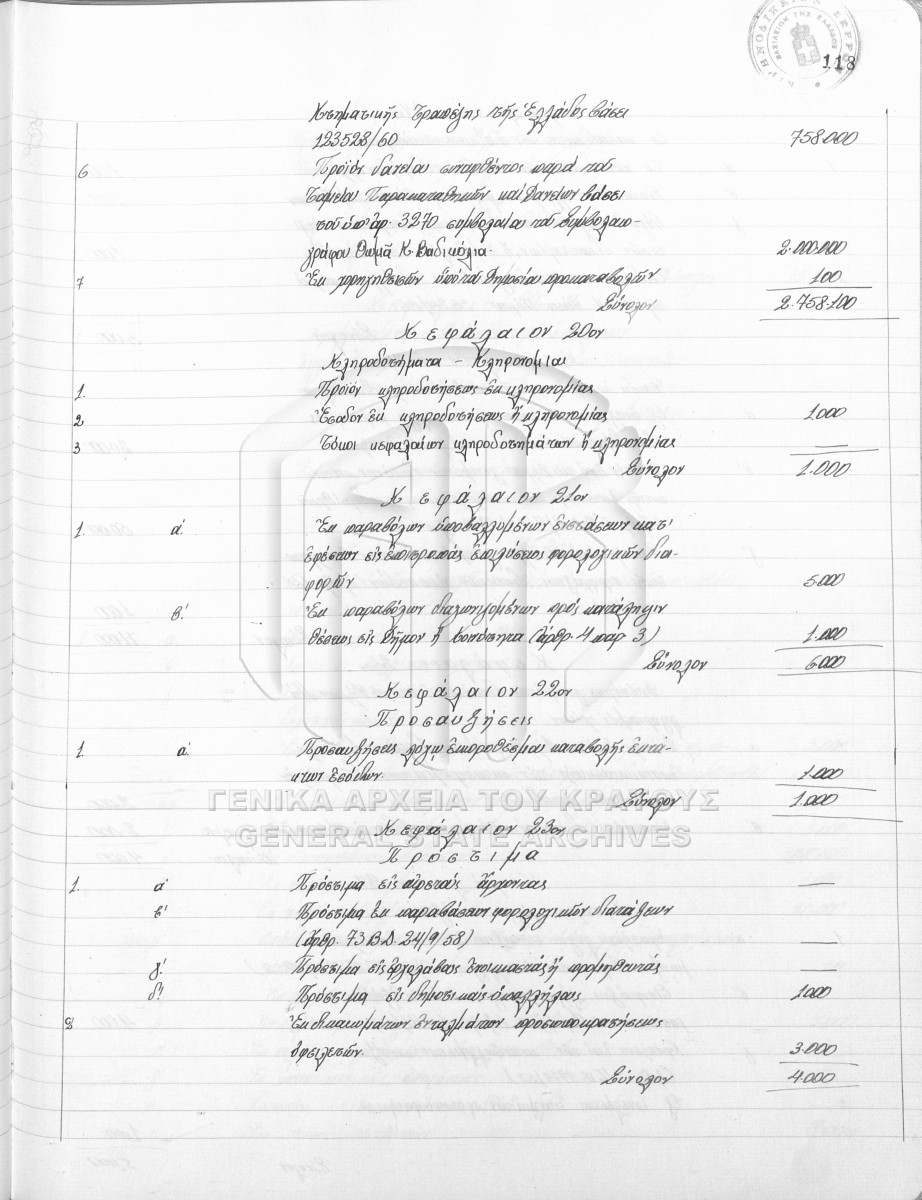 ΕΙΡΗΝΟΔΙΚΕΙΟΝ ΣΕΡΡΩΝ
ΒΑΣΙΛΕΙΟΝ ΤΗΣ ΕΛΛΑΔΟΣ
118
Κτηματικῆς Τραπέζης τῆς Ἑλλάδος βάσει
123528/60 758.000
6 Προϊόν δανείου συναφθέντος παρά τοῦ
Ταμείου Παρακαταθηκῶν καί Δανείων βάσει
τοῦ ὑπ' ἀρ. 3270 συμβολαίου τοῦ Συμβολαιο-
γράφου Θωμᾶ Κ. Βαδικόλια. 2.000.000
7 Ἐκ χορηγηθεισῶν ὑπό τοῦ Δημοσίου προκαταβολῶν 100
Σύνολον 2.758.100
Κεφάλαιον 20ον
Κληροδοτήματα - Κληρονομίαι
1. Προϊόν κληροδοτήσεως ἐκ κληρονομίας
2 Ἔσοδον ἐκ κληροδοτήσεως ἤ κληρονομίας 1.000
3 Τόκοι κεφαλαίων κληροδοτημάτων ἤ κληρονομίας —
Σύνολον 1.000
Κεφάλαιον 21ον
1. α'. Ἐκ παραβόλων ὑποβαλλομένων ἐνστάσεων κατ'
ἐφέσεων εἰς ἐπιτροπάς ἐπιλύσεως φορολογικῶν δια-
φορῶν 5.000
β.' Ἐκ παραβόλων διαγωνιζομένων πρός κατάληψιν
θέσεως εἰς Δῆμον ἤ Κοινότητα (ἄρθρ. 4 παρ 3,) 1.000
Σύνολον 6000
Κεφάλαιον 22ον
Προσαυξήσεις
1. α. Προσαυξήσεις λόγῳ ἐκπροθέσμου καταβολῆς ἐκτά-
κτων ἐσόδων. 1.000
Σύνολον 1.000
ΓΕΝΙΚΑ ΑΡΧΕΙΑ ΤΟΥ ΚΡΑΤΟΥΣ
GENERAL STATE ARCHIVES
Κεφάλαιον 23ον
Πρόστιμα
1. α' Πρόστιμα εἰς αἱρετούς ἄρχοντας —
β' Πρόστιμα ἐκ παραβάσεων φορολογικῶν διατάξεων
(ἄρθρ. 73 Β.Δ. 24/9/58) —
γ.' Πρόστιμα εἰς ἐργολάβους ἐνοικιαστάς ἤ προμηθευτάς —
δ'! Πρόστιμα εἰς δημοτικούς ὑπαλλήλους 1.000
8 Ἐκ δικαιωμάτων ἐνταλμάτων προσωποκρατήσεως
ὀφειλετῶν. 3.000
Σύνολον 4.000